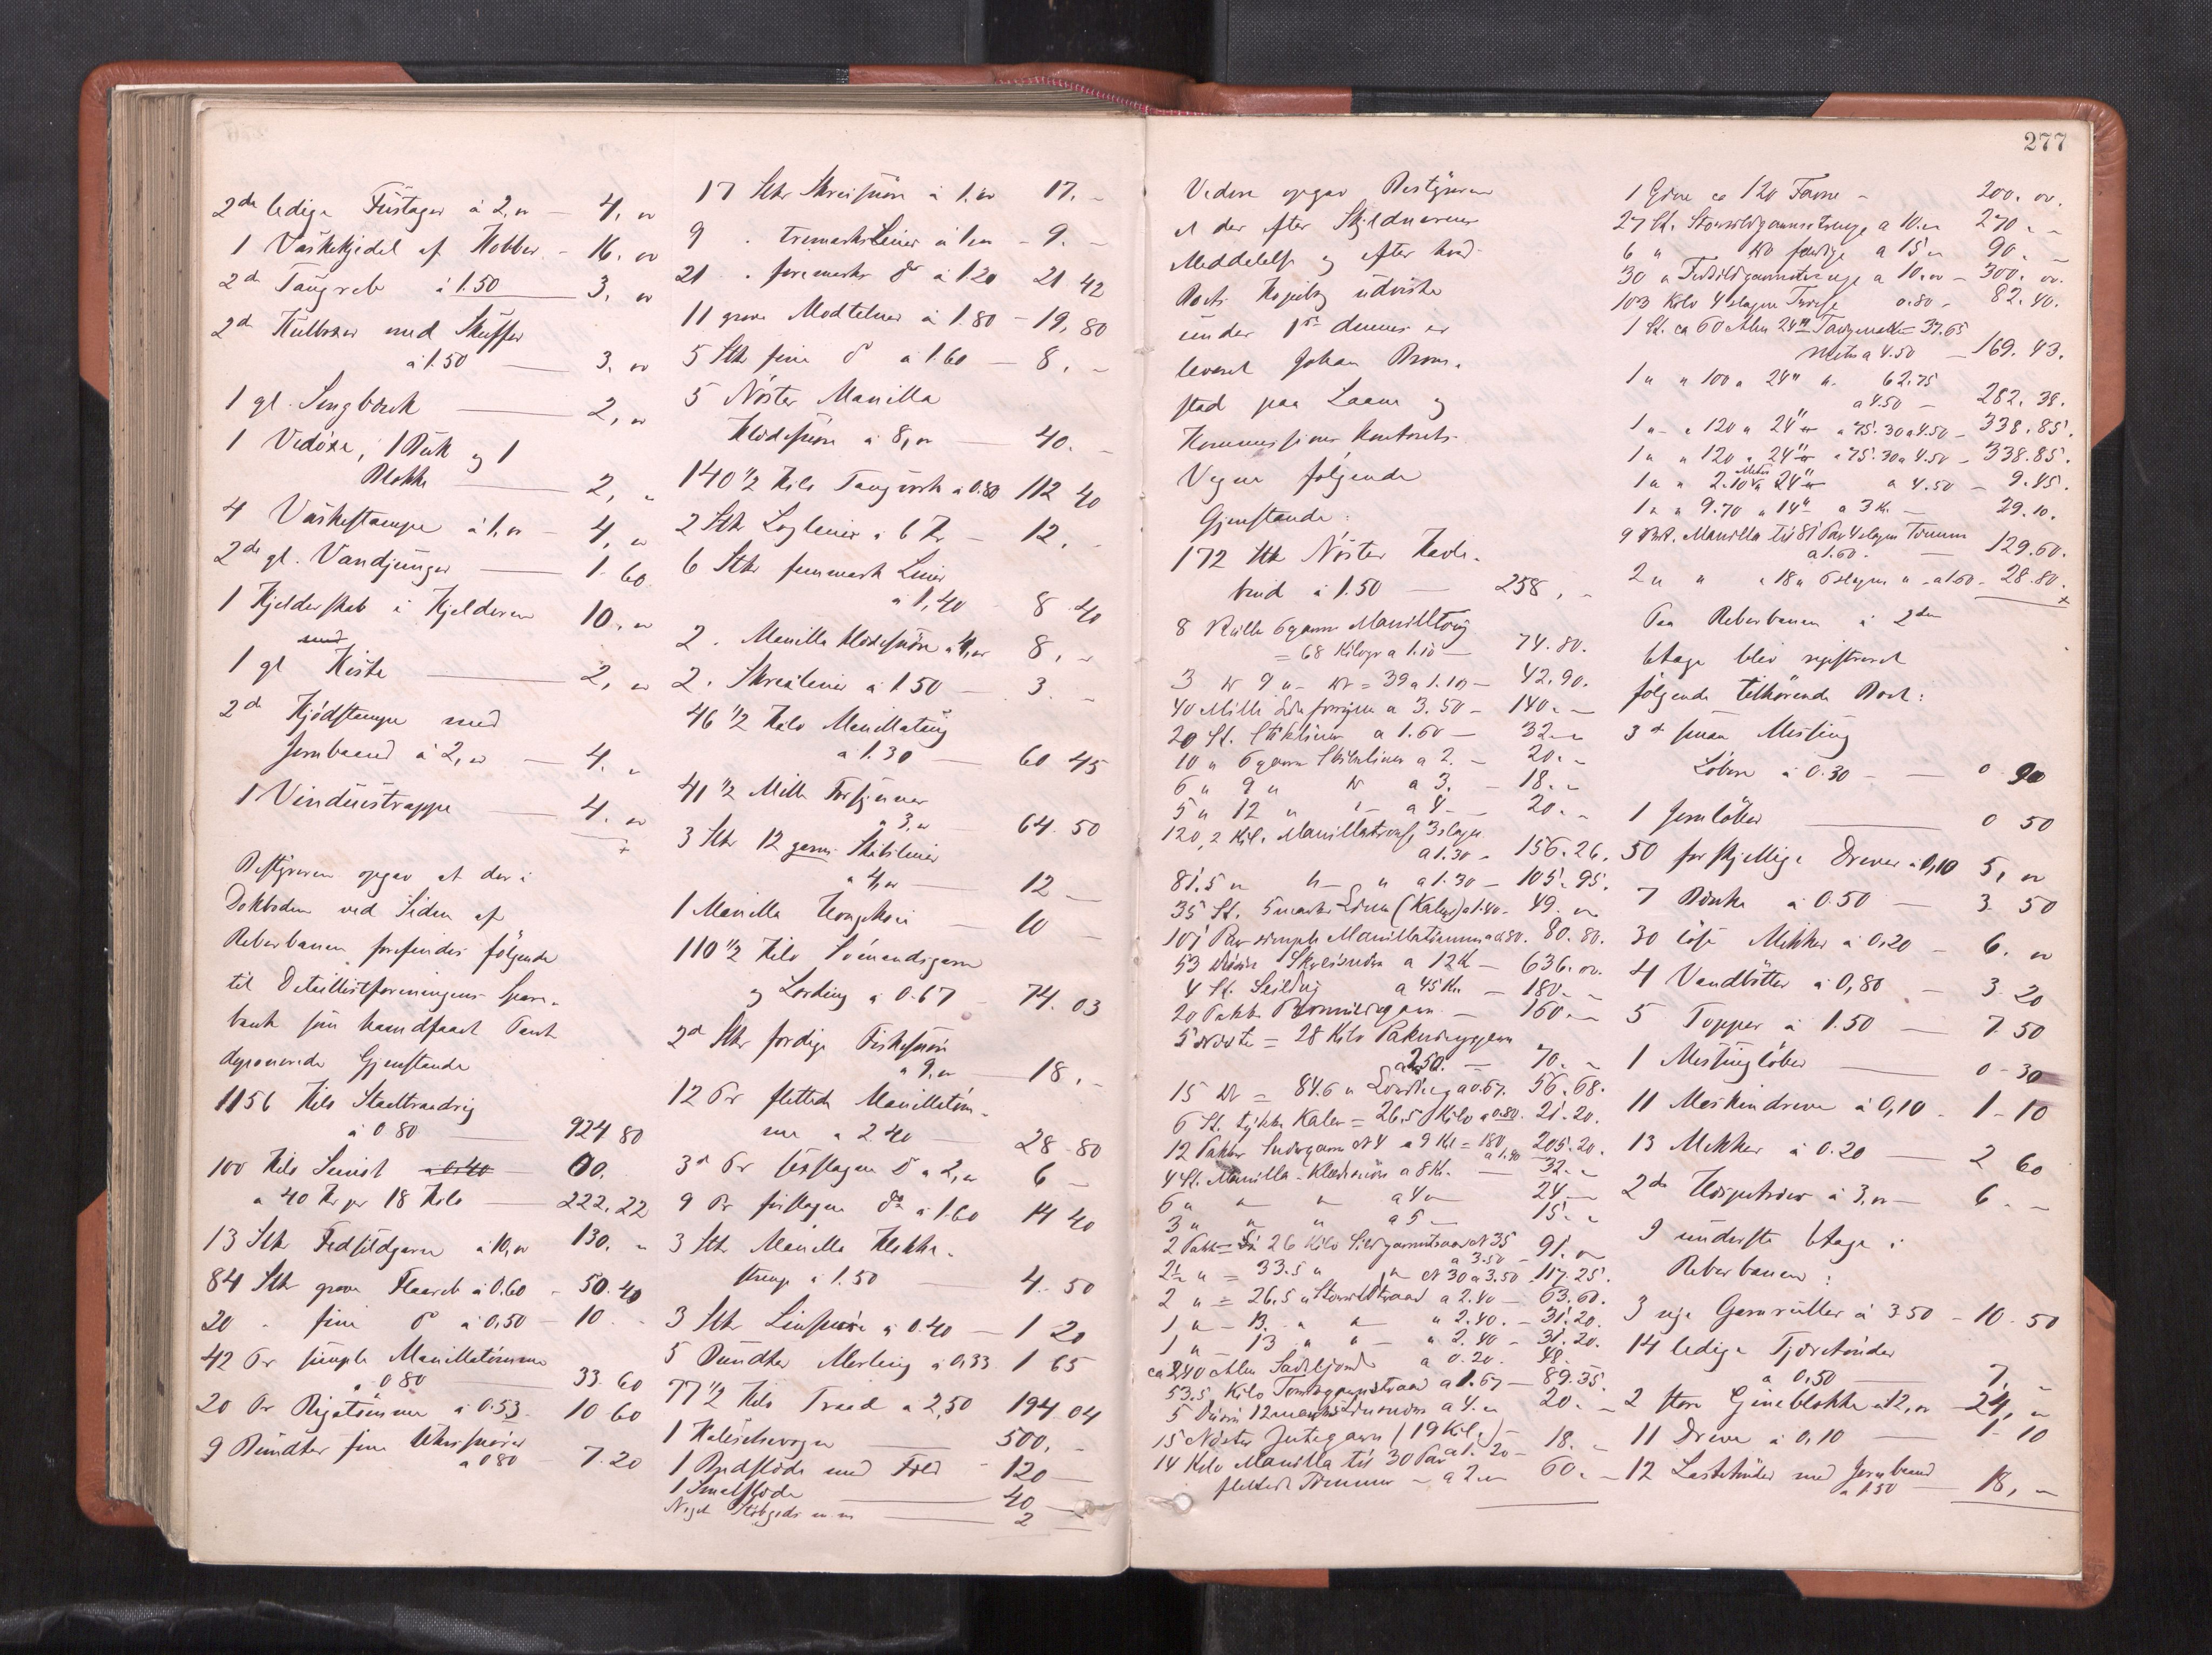 2de ledige Füstager à 2,00 — 4, 00
1 Vaskekjedel af Kobber - 16. 00
2de Taugreb à 1.50 3, 00
2de Kulbøxer med Skuffer
à 1.50 — 3. 00
1 gl. Sengbænk — 2, 00
1 Vedöxe, 1 Buk og 1
Blokke — 2, "
4 Vaskestampe à 1,00 — 4, 00
2de gl. Vandjunger — 1. 60
1 Kjelderskab i Kjelderen 10. 00
1 gl Kiste — 2, 00
2de Kjödstamper med
Jernbaand à 2,00 — 4. "
1 Vinduestrappe — 4. 00
Bestyreren opgav at der i
Dokboden ved Siden af
Reberbanen forefindes følgende
til Detaillistforeningens Spare-
bank som haandfaaet Pant
deponerede Gjenstande
1156 Kilo Staaltraadrig
à 0 80 — 924 80
100 Kilo Seiust
a 40 Kr pr 18 Kilo — 222, 22
13 Stk Fedsildgarn à 10,00 130. "
84 Stk grove Flaareb à 0.60 - 50. 40
20 " fine do à 0,50 - 10. -
42 Pr simple Manillatömme
à 0 80 — 33. 60
20 Pr Rigatömme à 0.53 10 60
9 Bundter fine
a 0 80 — 7. 20
17 Stk Skreisnöre à 1.00 17. -
9 " tremarksLiner à 1,00 - 9. -
21 " firemarks do à 1.20 21 42
11 grove Modteliner à 1.80 - 19, 80
5 Stk fine do à 1.60 — 8, -
5 Nöster Manilla
Klædesnöre à 8,00 — 40. -
140 1/2 Kilo Taugværk à 0.80 112 40
2 Stk Logliner à 6 Kr — 12, -
6 Stk femmark Liner
à 1,40 - 8 40
2 . Manilla Klædesnöre à 4,00 8, -
2 . Skreiliner à 1 50 — 3. -
46 1/2 Kilo Manillataug
à 1.30 — 60 45
41 1/2 Mille Forsyner
à 3,00 64. 50
3 Stk 12 garns Skibsliner
à 4,00 — 12 —
1 Manilla Hengekøie — 10 -
110 1/2 Kilo Sömandsgarn
og Lording à 0.67 - 74. 03
2de Stk færdige Fiskesnöre
à 9,00 — 18, -
12 Pr flettede Manillatöm-
me a 2 40 — 28 80
3de Pr sexslagen do a 2,00 6 —
9 Pr firslagen do à 1.60 14 40
3 Stk Manilla Klokke-
strenge à 1.50 — 4. 50
3 Stk Linsnöre à 0.40 — 1 20
5 Bundter Merling à 0,33 1 65
77 1/2 Kilo Traad a 2,50 194 04
1 Kaleschevogn — 500, -
1 Bredslæde med Feld - 120 —
1 Smalslæde — 40 —
Noget Støbgods m.m — 2 —
277
Videre opgav Bestyreren
at der efter Skyldnerens
Meddelelse og efter hvad
under 1ste dennes er
leveret Johan Brom-
stad paa Laane og
Kommissions Kontorets
Vegne følgende
Gjenstande:
172 Stk Nöster Kavle-
baand à 1.50 — 258, -
8 Rulle 6garns Manilltaug
= 68 Kilogr a 1.10 — 74. 80.
3 do 9 " - do = 39 a 1.10 — 42. 90.
40 Mille Lineforsyn a 3. 50 — 140. -
20 St. Stikliner a 1.60 — 32. -
10 " 6 garns Skibsliner a 2. — 20. -
6 " 9 " do a 3. - 18. -
5 " 12 " " - a 4 - 20. -
120,2 Kil. Manillatraase 3slagen
a 1.30 - 156. 26.
81.5 " " - " a 1.30 — 105. 95.
35 St. 5marks Liner (Kaler) a 1.40. 49. -
101 Par simple Manillatömme a 0.80. 80. 80.
53 Skreisnöre a 12K — 636. 00.
4 St. Seildug a 45 Kr — 180. -
20 Pakker Bomuldsgarn — 160. -
5 Nöste = 28 Kilo
a 2.50. — 70. -
15 do = 84.6 " Lording a 0.67. 56. 68.
6 St. tykke Kaler = 26.5 Kilo a 0.80. 21. 20.
12 Pakker N 4 a 9 Kil = 180 a 1.90 205. 20.
4 St. Manilla-Klædesnöre a 8 Kr. — 32. -
6 " " " a 4 " 24. -
3 " " " a 5 — 15. -
2 Pakker = 26 Kilo Sildgarntraad N 35
a 3.50 - 91. -
2 1/2 " = 33.5 " " N 30 a 3.50. 117. 25.
2 " = 26.5 " Storsildtraad a 2.40 — 63. 60.
1 " - 13. " " " 2.40. — 31. 20.
1 " 13 " " — " 2.40 - 31. 20.
ca 240 Alen Sadelgjord a 0.20. 48.
53.5 Kilo Tomgarnstraad a 1.67 — 89. 35.
5 12marks Linsnöre a 4. " 20. -
15 Nöster Jutegarn (19 Kil.) - a 1. 20 - 18. -
14 Kilo Manilla til 30 Par
flettede Tömmer - a 2. - 60. -
1 Gine ca 120 Favne - 200. 00.
27 St. Storsildgarnsstrenge a 10.00 270. -
6 " do færdige a 15 " 90. -
30 " Fedsildgarnstrenge a 10.00 - 300. 00.
103 Kilo 4 slagen Trosse 0.80 - 82. 40.
1 St. ca 60 Alen 24" Taugmatte = 37.65
Meter a 4.50 — 169. 43.
1 " " 100 " 24" " 62.75
a 4.50 — 282. 38.
1 " " 120 " 24" " 75. 30 a 4.50 - 338. 85.
1 " " 120 " 24" " 75. 30 a 4.50 - 338. 85.
1 " " 2.10 Meter 24" a 4.50 - 9. 45.
1 " " 9.70 " 14" a 3 Kr. — 29. 10.
9 Bdt. Manilla til 81 Par 4 slagen Tömme
a 1.60. — 129. 60.
2 " " " 18 " 6 slagen " - a 1.60 - 28. 80.
Paa Reberbanen i 2den
Etage blev registreret
følgende tilhörende Boet:
3de smaa Messing
Löbere à 0.30 — 0 90
1 Jernlöber — 0 50
50 forskjellige Drever à 0,10 5, 00
7 Bænke à 0.50 — 3. 50
30 löse Mekker à 0,20 - 6. 00
4 Vandbötter à 0,80 - 3. 20
5 Topper à 1.50 — 7. 50
1 Messinglöber — 0 - 30
11 Maskindreve à 0,10 - 1 - 10
13 Mekker à 0.20 — 2 60
2de à 3,00 — 6. -
I underste Etage i
Reberbanen:
3 nye Garnruller à 3.50 - 10. 50
14 ledige Tjæretönder
à 0,50 — 7, -
2 store Gineblokke à 12,00 24, "
11 Dreve à 0,10 — 1 - 10
12 med Jernbaand
à 1.50 — 18, -